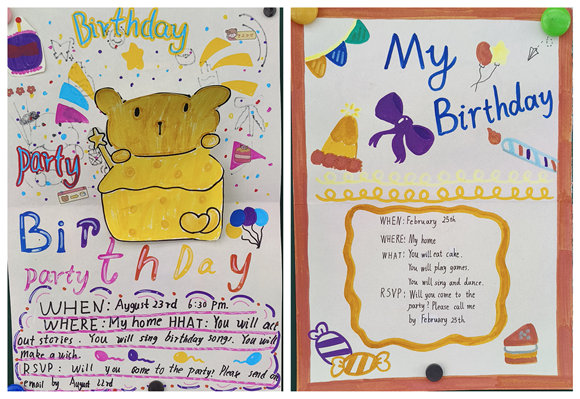 Birthday
party
BirthDay
party
WHEN: August 23rd 6:30 pm.
WHERE: My home HHAT: You will act
out stories. You will sing birthday songs. You will
make a wich.
RSVP: Will you come to the party? Please send an
email by August 22rd
My
Birthday
WHEN: February 25th
WHERE: My home
WHAT: You will eat cake.
You will play games.
You will sing and dance.
RSVP: Will you come to the
party? Please call me
by February 25th